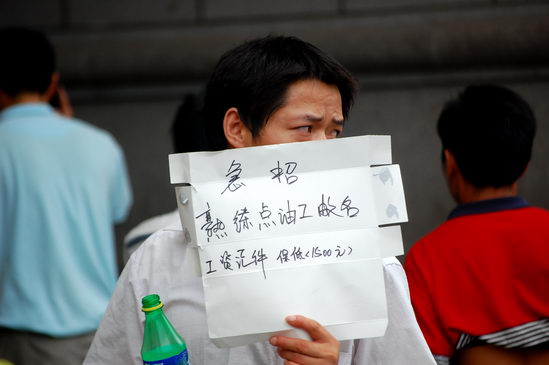 急招
熟练点油工数名
工资记件 保低(1500元)